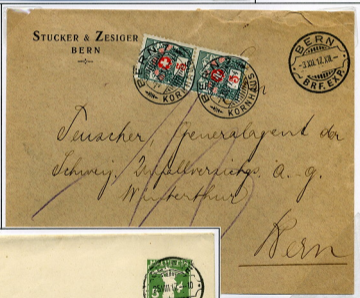 STUCKER & ZESIGER
BERN
BERN
KORNHAUS
BERN
KORNHAUS
BERN
-3.XII.12.XII.-
BRF. EXP.
Teuscher, Generalagent der
Schweiz. Unfallversichgs. a.-g.
Winterthur
Bern